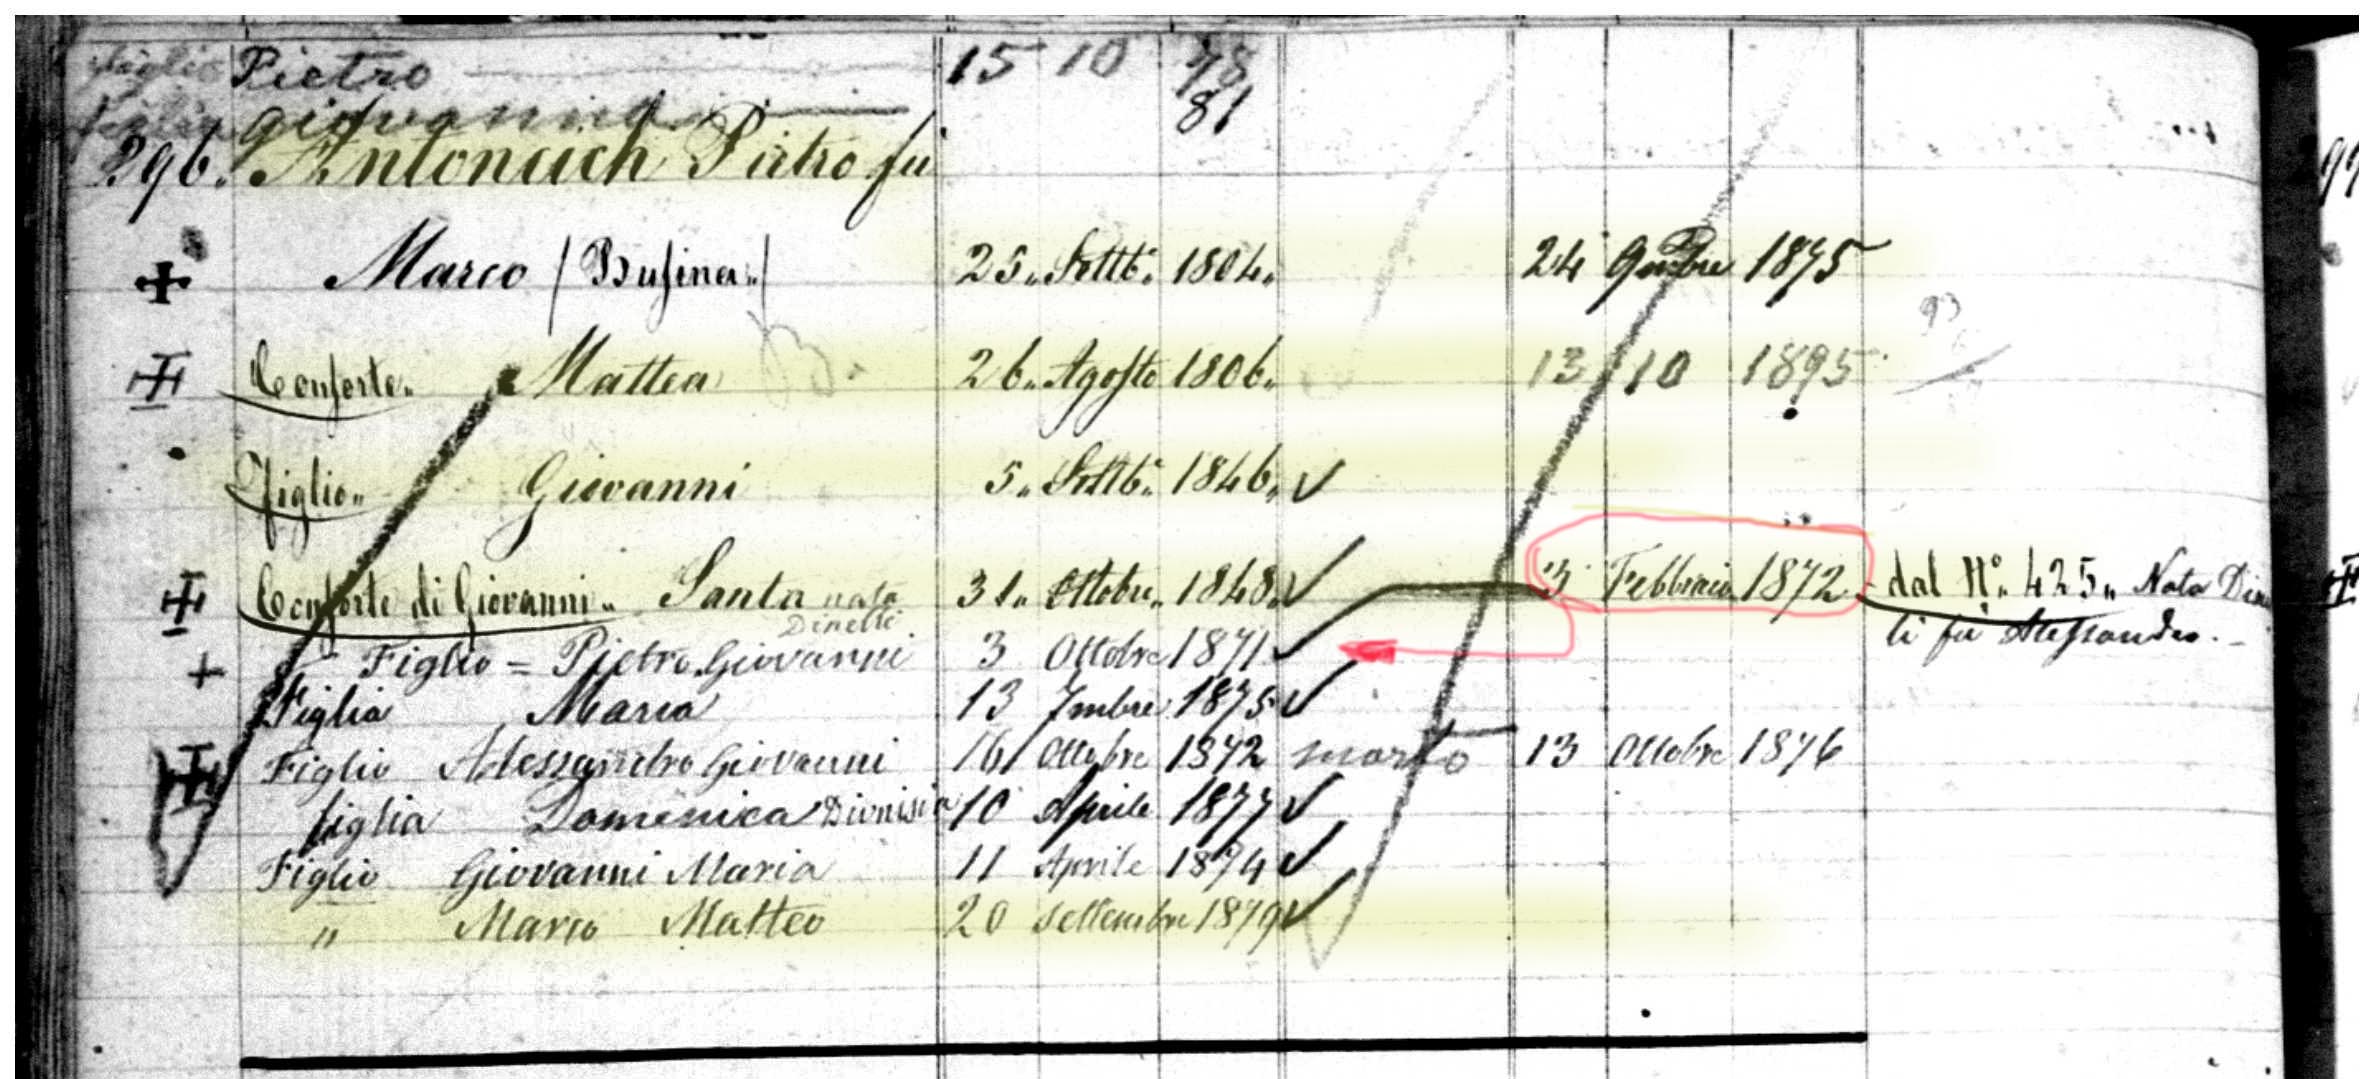 figlio Pietro 15 10 78
figlia giovanna 81
296. Antoncich Pietro fu
Marco (Busina) 25. Settb. 1804. 24 9mbre 1875
Consorte. Mattea 26. Agosto 1806. 13 10 1895. 93
figlio. Giovanni 5. Settb. 1846.
Consorte di Giovanni. Santa nata 31. Ottobre. 1848. 3 Febbraio 1872 dal N.º 425. Nata Dine
Dinelli li fù Alessandro.
Figlio = Pietro Giovanni 3 Ottobre 1871
Figlia Maria 13 7mbre 1875
Figlio Alessandro Giovanni 16 Ottobre 1872 morto 13 Ottobre 1876
figlia Domenica Dionisia 10 Aprile 1877
Figlio Giovanni Maria 11 Aprile 1874
" Marco Matteo 20 settembre 1879